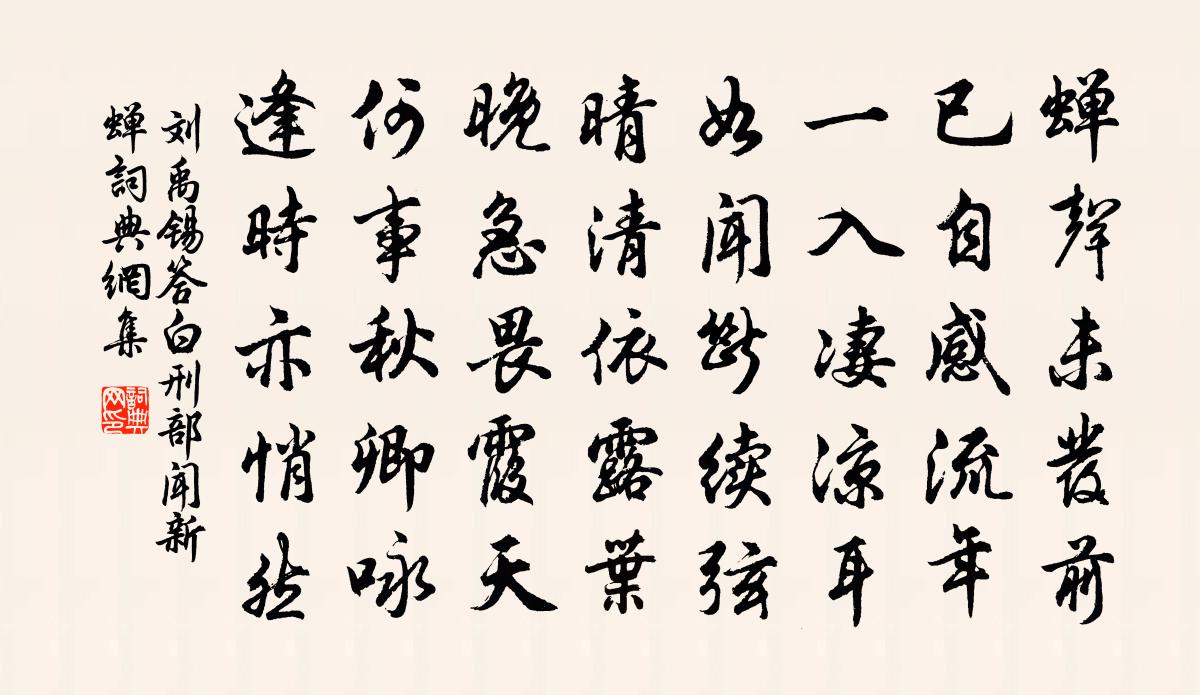 蝉聲未發前
已自感流年
一入凄凉耳
如聞斷续弦
晴清依露葉
晚急畏霞天
何事秋卿咏
逢時亦悄然
刘禹錫答白刑部聞新
蝉詞典網集
詞典网印